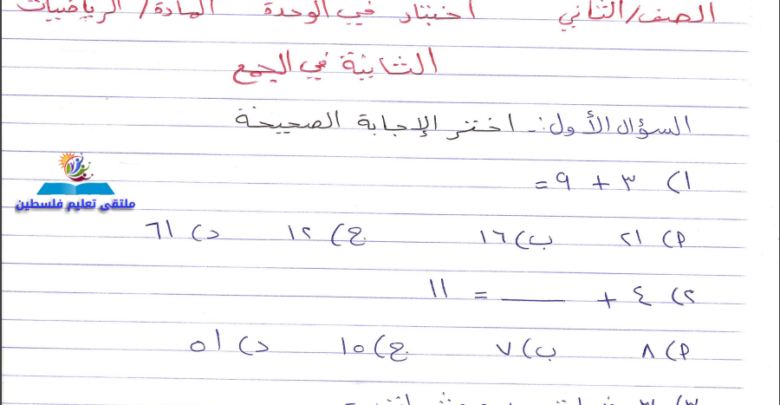 الصف/الثاني اختبار في الوحدة المادة/ الرياضيات
الثانية في الجمع
السؤال الأول:- اختر الإجابة الصحيحة
١) ٣ + ٩ =
أ) ٢١ ب) ١٦ ج) ١٢ د) ٦١
٢) ٤ + ___ = ١١
أ) ٨ ب) ٧ ج) ١٥ د) ٥١
ملتقى تعليم فلسطين